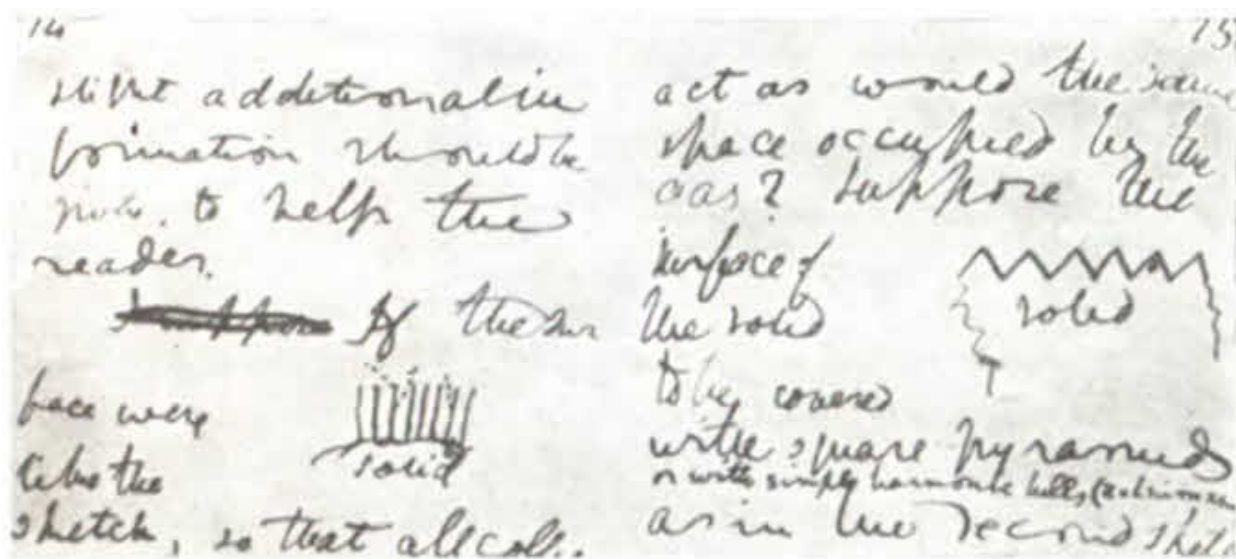 14
slight additional in
formation should be
given, to help the
reader.
If the sur
face were
like the
solid
sketch, so that all coll..
15
act as would the same
space occupied by the
gas? Suppose the
surface of
the solid
solid
to be covered
with square pyramids
or with simply harmonic hills,
as in the second sket